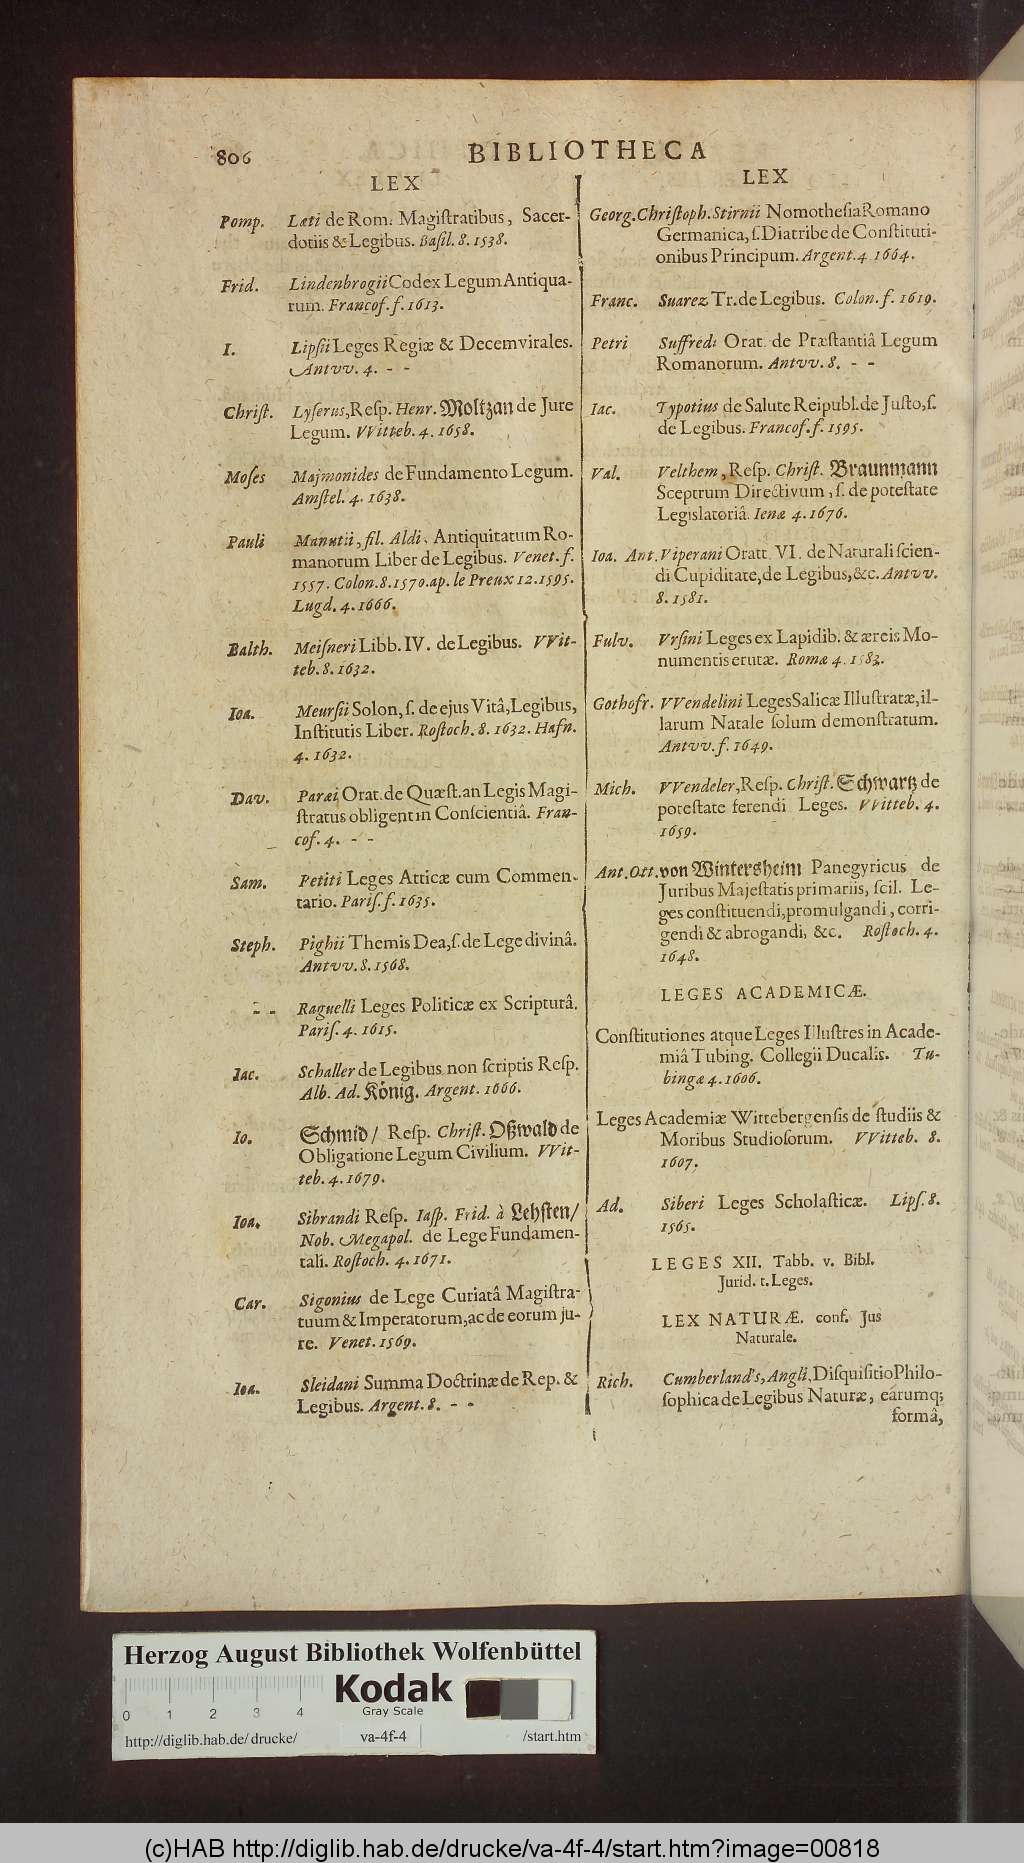 806
BIBLIOTHECA
LEX
Pomp. Læti de Rom. Magiſtratibus, Sacer-
dotiis & Legibus. Baſil. 8. 1538.
Frid. Lindenbrogii Codex Legum Antiqua-
rum. Francof. f. 1613.
I. Lipſii Leges Regiæ & Decemvirales.
Antvv. 4. - -
Chriſt. Lyſerus, Reſp. Henr. Moltzan de Jure
Legum. VVitteb. 4. 1658.
Moſes Majmonides de Fundamento Legum.
Amſtel. 4. 1638.
Pauli Manutii, fil. Aldi, Antiquitatum Ro-
manorum Liber de Legibus. Venet. f.
1557. Colon. 8. 1570. ap. le Preux 12. 1595.
Lugd. 4. 1666.
Balth. Meiſneri Libb. IV. de Legibus. VVit-
teb. 8. 1632.
Ioa. Meurſii Solon, ſ. de ejus Vitâ, Legibus,
Inſtitutis Liber. Roſtoch. 8. 1632. Hafn.
4. 1632.
Dav. Paræi Orat. de Quæſt. an Legis Magi-
ſtratus obligent in Conſcientiâ. Fran-
cof. 4. - -
Sam. Petiti Leges Atticæ cum Commen-
tario. Pariſ. f. 1635.
Steph. Pighii Themis Dea, ſ. de Lege divinâ.
Antvv. 8. 1568.
- - Raguelli Leges Politicæ ex Scripturâ.
Pariſ. 4. 1615.
Iac. Schaller de Legibus non ſcriptis Reſp.
Alb. Ad. König. Argent. 1666.
Io. Schmid / Reſp. Chriſt. Oßwald de
Obligatione Legum Civilium. VVit-
teb. 4. 1679.
Ioa. Sibrandi Reſp. Iaſp. Frid. à Lehſten /
Nob. Megapol. de Lege Fundamen-
tali. Roſtoch. 4. 1671.
Car. Sigonius de Lege Curiatâ Magiſtra-
tuum & Imperatorum, ac de eorum ju-
re. Venet. 1569.
Ioa. Sleidani Summa Doctrinæ de Rep. &
Legibus. Argent. 8. - -
LEX
Georg. Chriſtoph. Stirnii Nomotheſia Romano
Germanica, ſ. Diatribe de Conſtituti-
onibus Principum. Argent. 4. 1664.
Franc. Suarez Tr. de Legibus. Colon. f. 1619.
Petri Suffredi Orat. de Præſtantiâ Legum
Romanorum. Antvv. 8. - -
Iac. Typotius de Salute Reipubl. de Juſto, ſ.
de Legibus. Francof. f. 1595.
Val. Velthem, Reſp. Chriſt. Braunmann
Sceptrum Directivum, ſ. de poteſtate
Legislatoriâ. Ienæ 4. 1676.
Ioa. Ant. Viperani Oratt. VI. de Naturali ſcien-
di Cupiditate, de Legibus, &c. Antvv.
8. 1581.
Fulv. Vrſini Leges ex Lapidib. & æreis Mo-
numentis erutæ. Romæ 4. 1583.
Gothofr. VVendelini Leges Salicæ Illuſtratæ, il-
larum Natale ſolum demonſtratum.
Antvv. f. 1649.
Mich. VVendeler, Reſp. Chriſt. Schwartz de
poteſtate ferendi Leges. VVitteb. 4.
1659.
Ant. Ott. von Wintersheim Panegyricus de
Juribus Majeſtatis primariis, ſcil. Le-
ges conſtituendi, promulgandi, corri-
gendi & abrogandi, &c. Roſtoch. 4.
1648.
LEGES ACADEMICÆ.
Conſtitutiones atque Leges Illuſtres in Acade-
miâ Tubing. Collegii Ducalis. Tu-
bingæ 4. 1606.
Leges Academiæ Wittebergenſis de ſtudiis &
Moribus Studioſorum. VVitteb. 8.
1607.
Ad. Siberi Leges Scholaſticæ. Lipſ. 8.
1565.
LEGES XII. Tabb. v. Bibl.
Jurid. t. Leges.
LEX NATURÆ. conf. Jus
Naturale.
Rich. Cumberland's, Angli, Diſquiſitio Philo-
ſophica de Legibus Naturæ, earumq;
formâ,
Herzog August Bibliothek Wolfenbüttel
0 1 2 3 4
Kodak
Gray Scale
http://diglib.hab.de/drucke/ va-4f-4 /start.htm
(c)HAB http://diglib.hab.de/drucke/va-4f-4/start.htm?image=00818